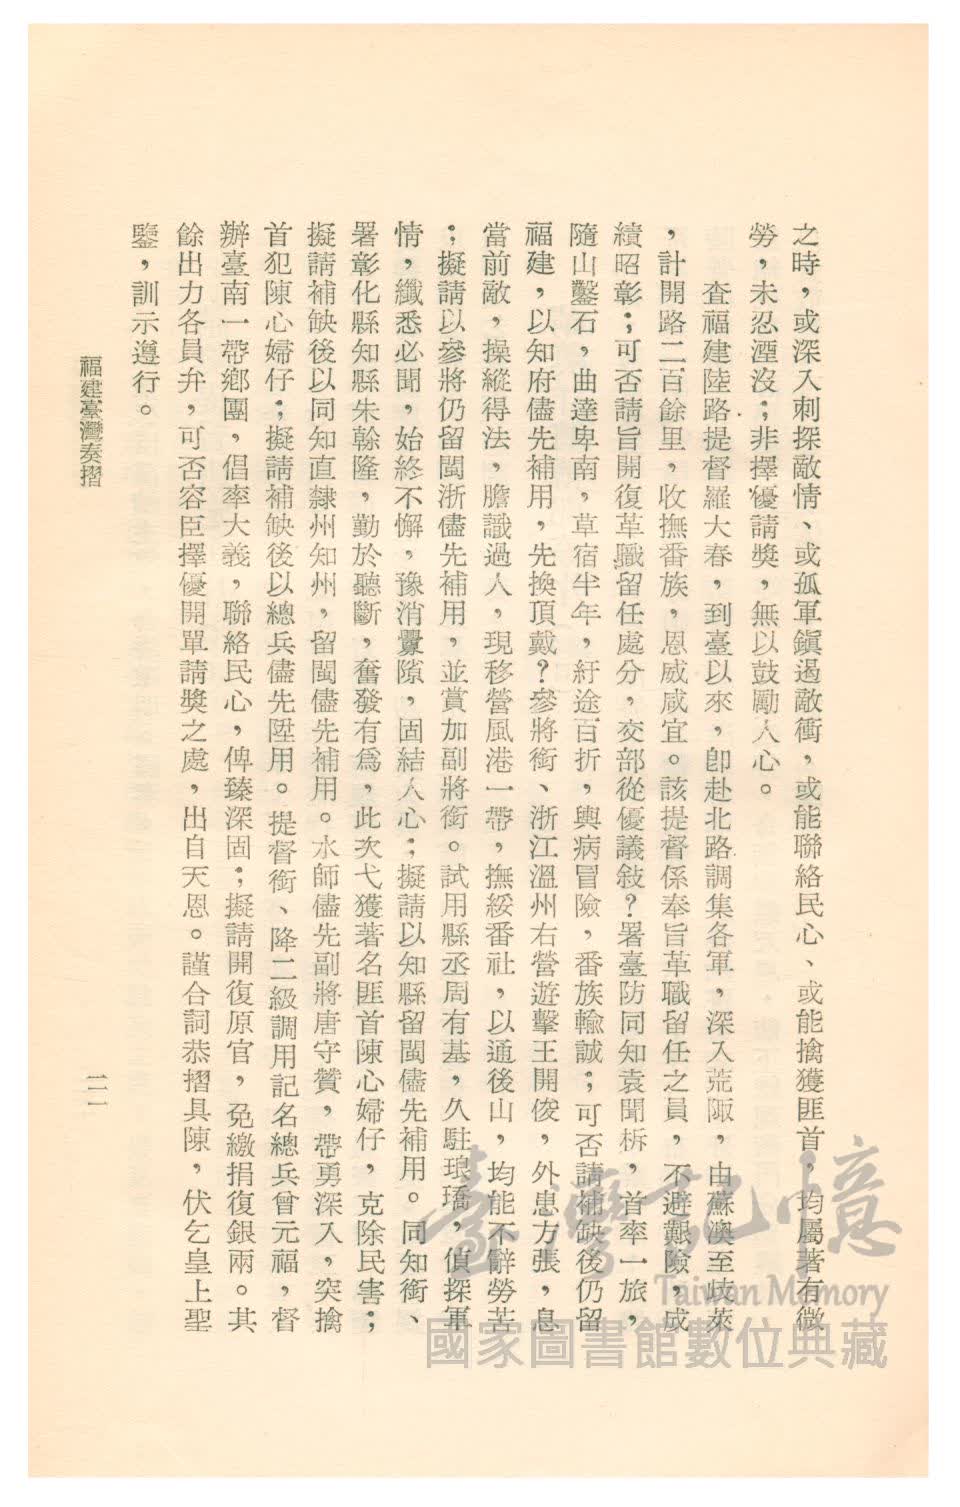 之時，或深入刺探敵情、或孤軍鎭遏敵衝，或能聯絡民心、或能擒獲匪首，均屬著有微
勞，未忍湮沒；非擇優請獎，無以鼓勵人心。
查福建陸路提督羅大春，到臺以來，卽赴北路調集各軍，深入荒陬，由蘇澳至歧萊
，計開路二百餘里，收撫番族，恩威咸宜。該提督係奉旨革職留任之員，不避艱險，成
績昭彰；可否請旨開復革職留任處分，交部從優議敍？署臺防同知袁聞柝，首率一旅，
隨山鑿石，曲達卑南，草宿半年，紆途百折，輿病冒險，番族輸誠；可否請補缺後仍留
福建，以知府儘先補用，先換頂戴？參將銜、浙江溫州右營遊擊王開俊，外患方張，息
當前敵，操縱得法，膽識過人，現移營風港一帶，撫綏番社，以通後山，均能不辭勞苦
；擬請以參將仍留閩浙儘先補用，並賞加副將銜。試用縣丞周有基，久駐琅𤩝，偵探軍
情，纖悉必聞，始終不懈，豫消釁隙，固結人心；擬請以知縣留閩儘先補用。同知銜、
署彰化縣知縣朱幹隆，勤於聽斷，奮發有爲，此次弋獲著名匪首陳心婦仔，克除民害；
擬請補缺後以同知直隸州知州，留閩儘先補用。水師儘先副將唐守贊，帶勇深入，突擒
首犯陳心婦仔；擬請補缺後以總兵儘先陞用。提督銜、降二級調用記名總兵曾元福，督
辦臺南一帶鄉團，倡率大義，聯絡民心，俾臻深固；擬請開復原官，免繳捐復銀兩。其
餘出力各員弁，可否容臣擇優開單請獎之處，出自天恩。謹合詞恭摺具陳，伏乞皇上聖
鑒，訓示遵行。
福建臺灣奏摺
二一
臺灣記憶
Taiwan Memory
國家圖書館數位典藏